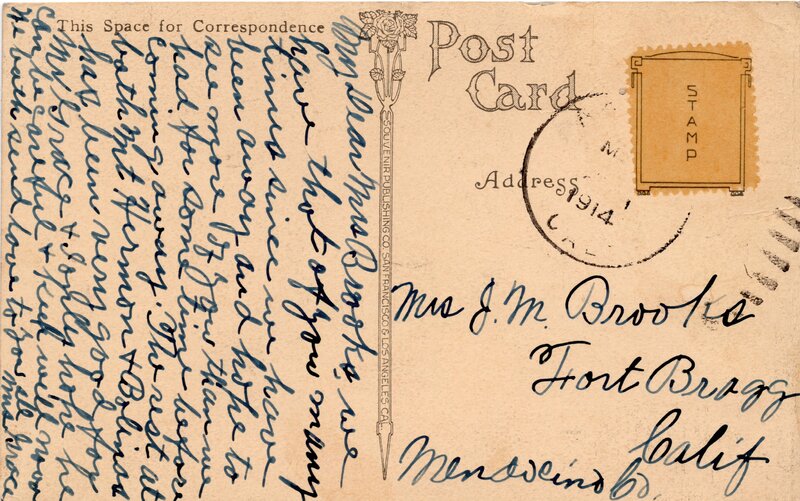 This Space for Correspondence
My Dear Mrs Brooks, we
have thot of you many
times since we have
been away and hope to
see more of you than we
had for some time before
coming away. The rest at
both Mt Hermon & Bolinas
has been very good for
Mr Grace & I only hope he
can be careful & keep well now
He back send love to you all
Mrs Grace
SOUVENIR PUBLISHING CO. SAN FRANCISCO & LOS ANGELES CAL.
Post
Card
Address
STAMP
1914
CAL
Mrs J. M. Brooks
Fort Bragg
Calif
Mendocino Co